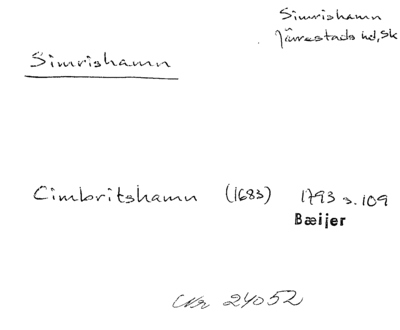 Simrishamn
Järrestads hd, Sk
Simrishamn
Cimbritshamn (1683) 1793 s. 109
Bæijer
Nr 24052